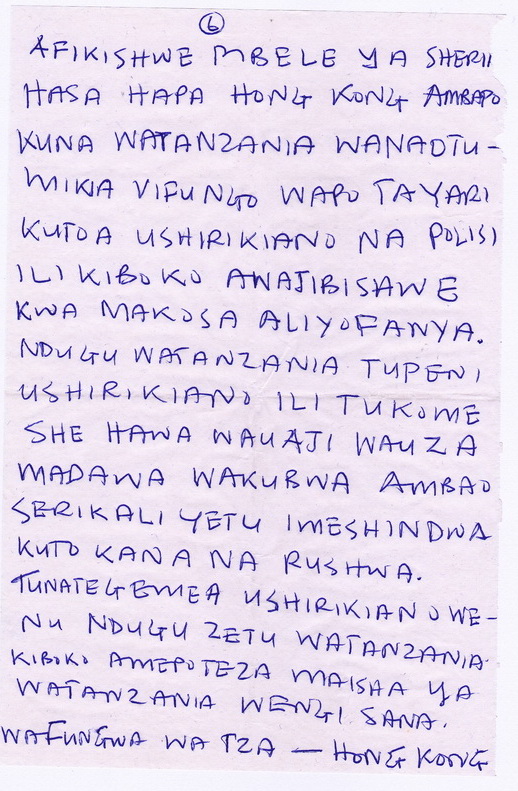 6
AFIKISHWE MBELE YA SHERII
HASA HAPA HONG KONG AMBAPO
KUNA WATANZANIA WANAOTU-
MIKIA VIFUNGO WAPO TAYARI
KUTOA USHIRIKIANO NA POLISI
ILI KIBOKO AWAJIBISHWE
KWA MAKOSA ALIYOFANYA.
NDUGU WATANZANIA TUPENI
USHIRIKIANO ILI TUKOME
SHE HAWA WAUAJI WAUZA
MADAWA WAKUBWA AMBAO
SERIKALI YETU IMESHINDWA
KUTO KANA NA RUSHWA.
TUNATEGEMEA USHIRIKIANO WE-
NU NDUGU ZETU WATANZANIA.
KIBOKO AMEPOTEZA MAISHA YA
WATANZANIA WENGI SANA.
WAFUNGWA WA TZA — HONG KONG